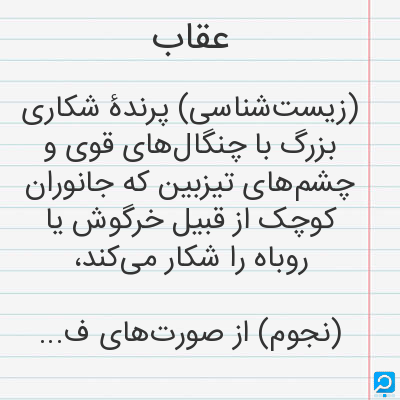 عقاب
(زیست‌شناسی) پرندهٔ شکاری
بزرگ با چنگال‌های قوی و
چشم‌های تیزبین که جانوران
کوچک از قبیل خرگوش یا
روباه را شکار می‌کند،
(نجوم) از صورت‌های ف...